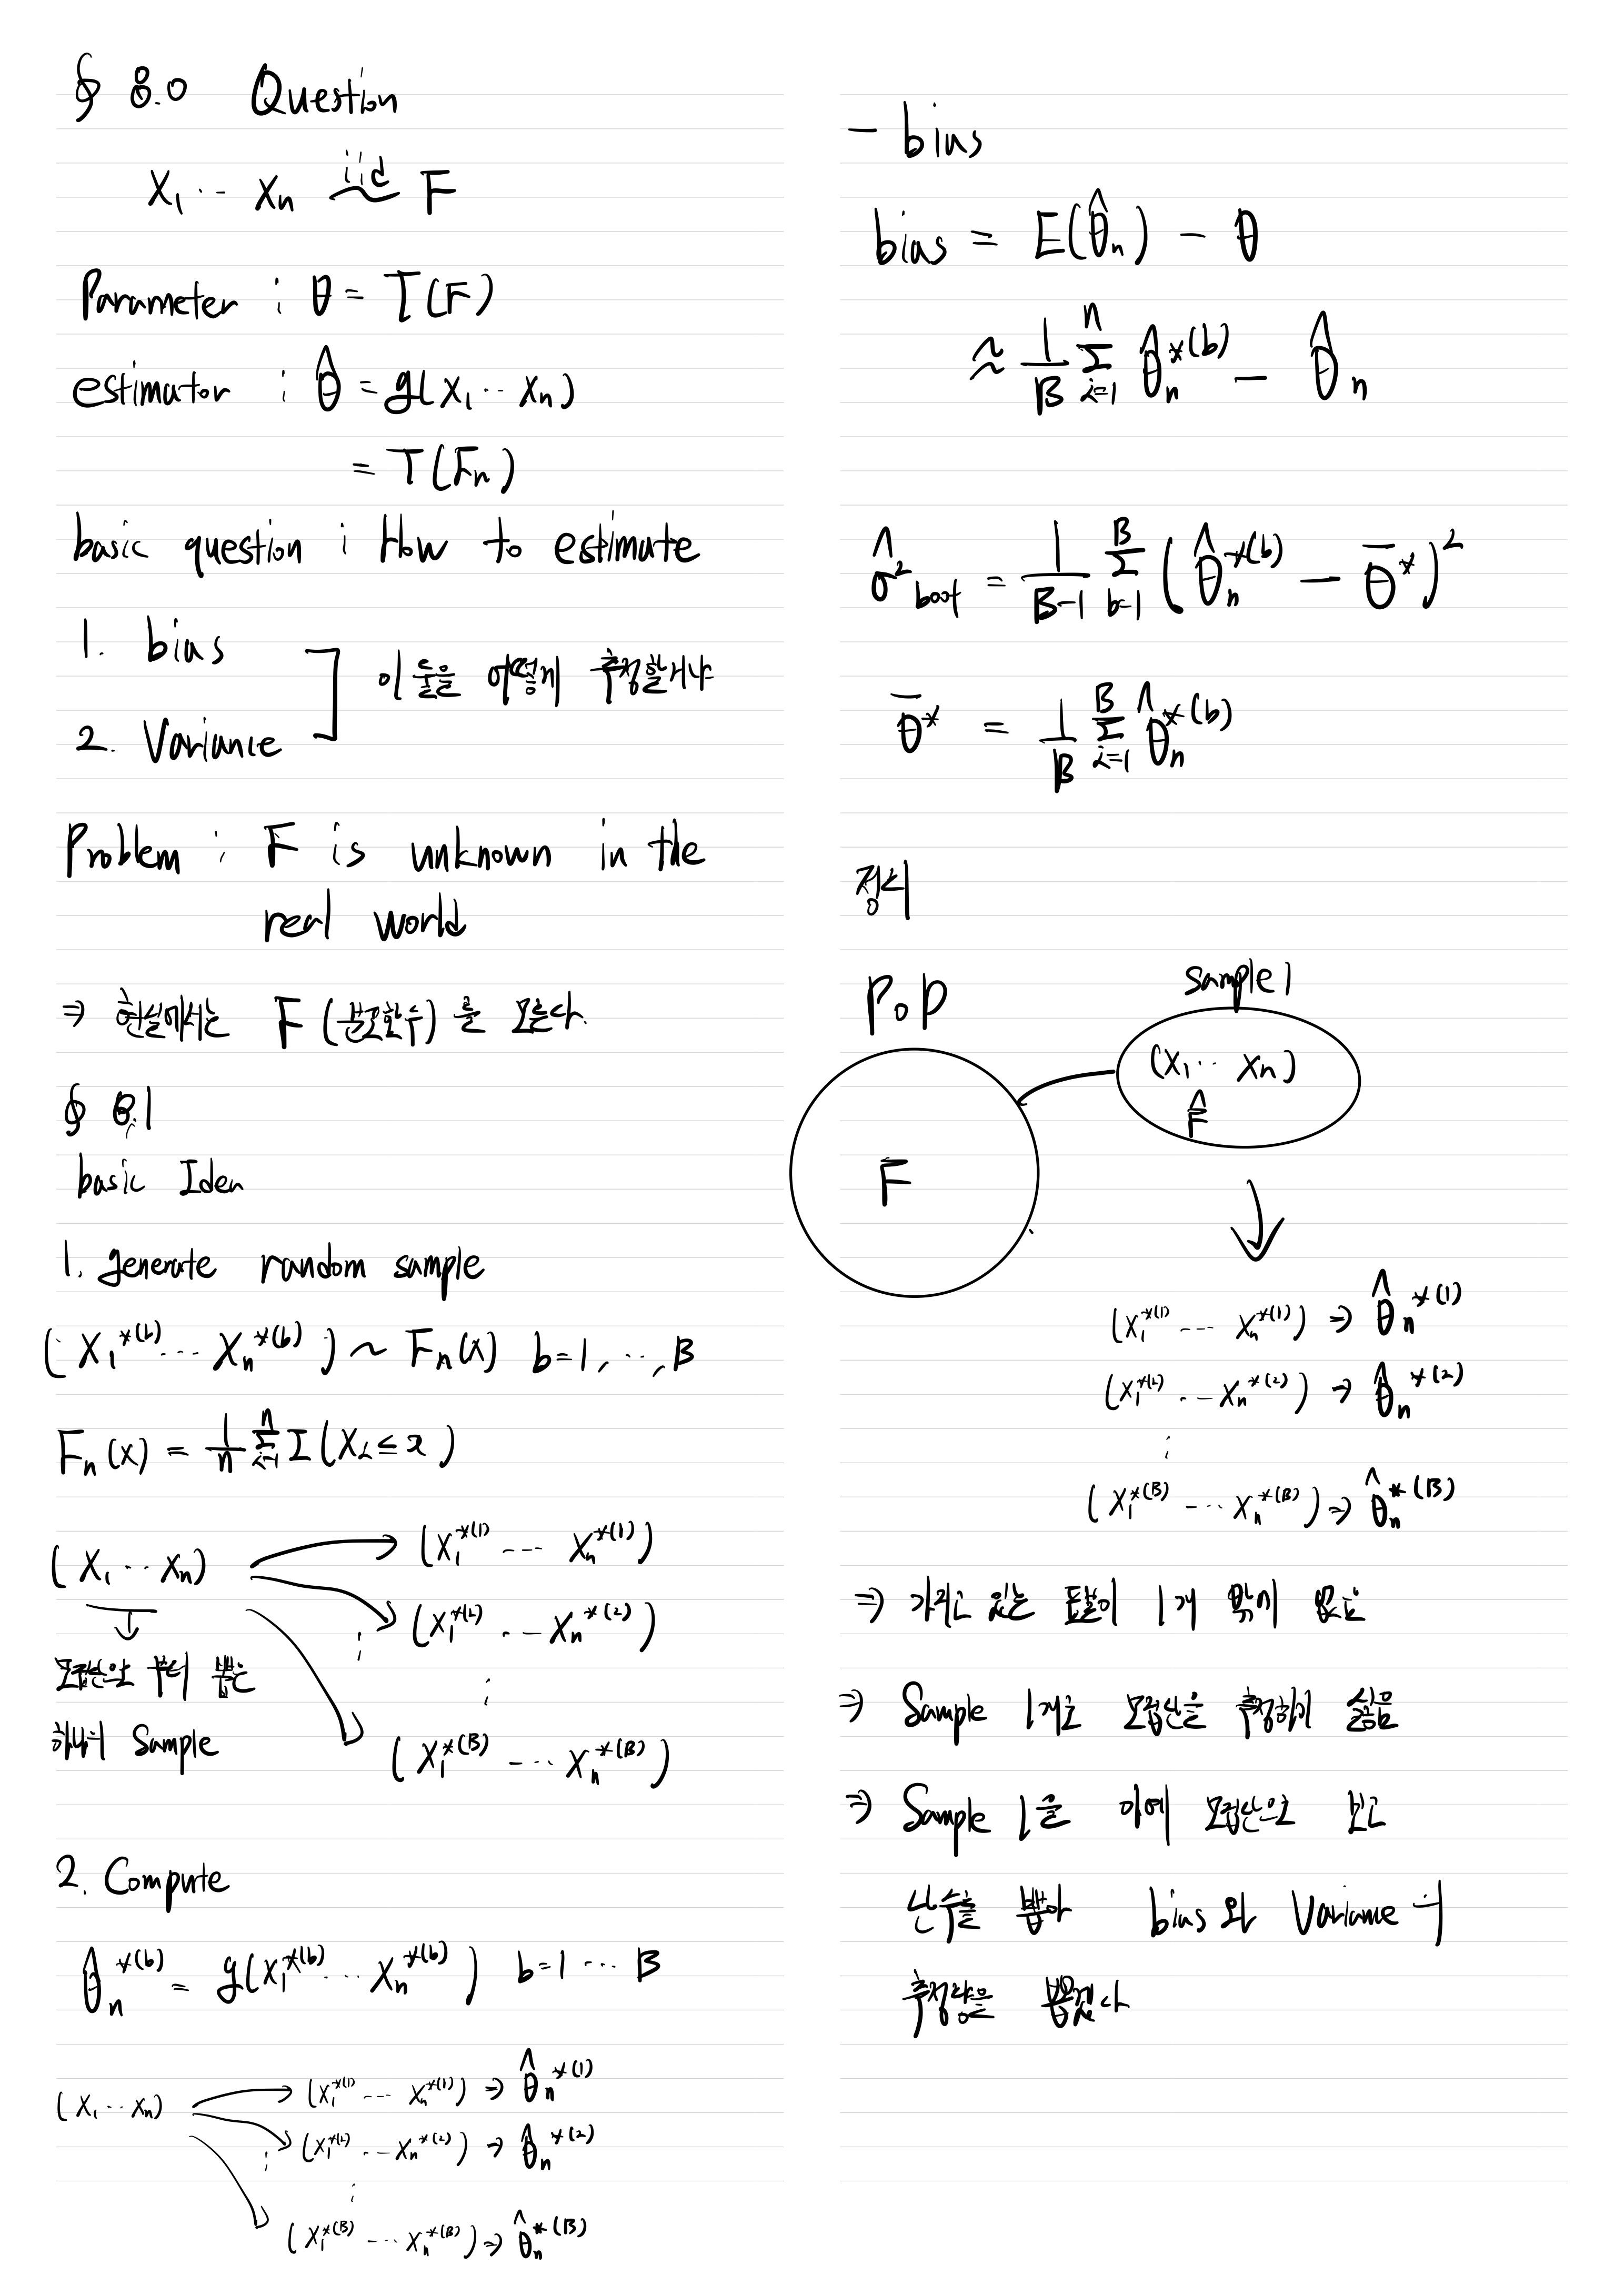 § 8.0 Question
X₁ ⋯ Xₙ ~ⁱⁱᵈ F
Parameter : θ = T(F)
estimator : θ̂ = g(X₁ ⋯ Xₙ)
= T(Fₙ)
basic question : How to estimate
1. bias
이 둘을 어떻게 추정할거냐
2. Variance
Problem : F is unknown in the
real world
⇒ 현실에서는 F (분포함수) 를 모른다.
§ 8.1
basic Idea
1. generate random sample
(X₁*⁽ᵇ⁾ ⋯ Xₙ*⁽ᵇ⁾) ~ Fₙ(x) b=1, ⋯, B
Fₙ(x) = 1/n Σᵢ₌₁ⁿ I(Xᵢ ≤ x)
(X₁ ⋯ Xₙ) (X₁*⁽¹⁾ ⋯ Xₙ*⁽¹⁾)
(X₁*⁽²⁾ ⋯ Xₙ*⁽²⁾)
⋮
모집단으로 부터 뽑은
하나의 Sample
(X₁*⁽ᴮ⁾ ⋯ Xₙ*⁽ᴮ⁾)
2. Compute
θ̂ₙ*⁽ᵇ⁾ = g(X₁*⁽ᵇ⁾ ⋯ Xₙ*⁽ᵇ⁾) b=1 ⋯ B
(X₁ ⋯ Xₙ) (X₁*⁽¹⁾ ⋯ Xₙ*⁽¹⁾) ⇒ θ̂ₙ*⁽¹⁾
(X₁*⁽²⁾ ⋯ Xₙ*⁽²⁾) ⇒ θ̂ₙ*⁽²⁾
⋮
(X₁*⁽ᴮ⁾ ⋯ Xₙ*⁽ᴮ⁾) ⇒ θ̂ₙ*⁽ᴮ⁾
- bias
bias = E(θ̂ₙ) - θ
≈ 1/B Σᵢ₌₁ⁿ θ̂ₙ*⁽ᵇ⁾ - θ̂ₙ
σ̂²boot = 1/(B-1) Σ_{b=1}^{B} (θ̂ₙ*⁽ᵇ⁾ - θ̄*)²
θ̄* = 1/B Σᵢ₌₁ᴮ θ̂ₙ*⁽ᵇ⁾
정리
Pop
sample 1
(X₁ ⋯ Xₙ)
F̂
F
(X₁*⁽¹⁾ ⋯ Xₙ*⁽¹⁾) ⇒ θ̂ₙ*⁽¹⁾
(X₁*⁽²⁾ ⋯ Xₙ*⁽²⁾) ⇒ θ̂ₙ*⁽²⁾
⋮
(X₁*⁽ᴮ⁾ ⋯ Xₙ*⁽ᴮ⁾) ⇒ θ̂ₙ*⁽ᴮ⁾
⇒ 가지고 있는 표본이 1개 밖에 없음
⇒ Sample 1개로 모집단을 추정하기 싫음
⇒ Sample 1을 아예 모집단으로 보고
난수를 뽑아 bias 와 Variance 의
추정량을 뽑겠다